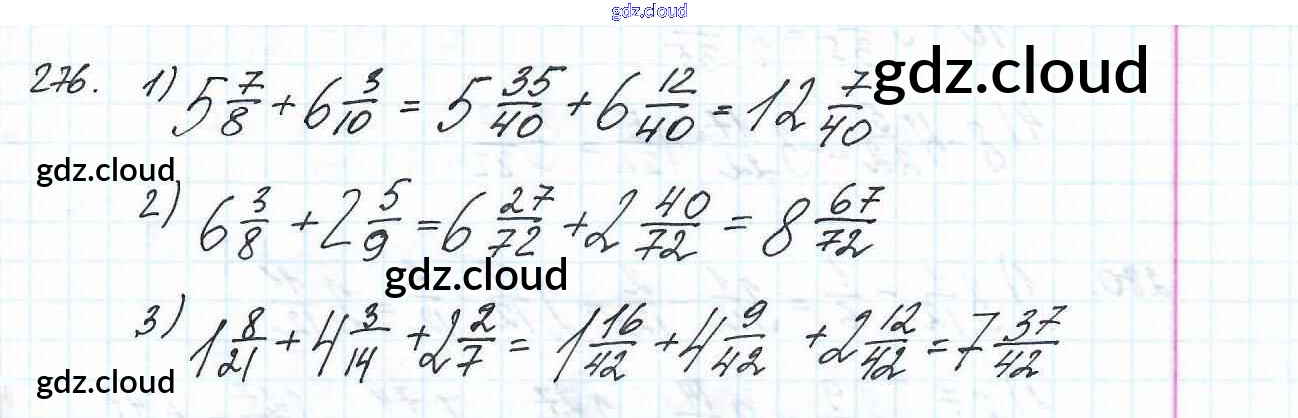 gdz.cloud
276. 1) 5 7/8 + 6 3/10 = 5 35/40 + 6 12/40 = 12 7/40 gdz.cloud
gdz.cloud
2) 6 3/8 + 2 5/9 = 6 27/72 + 2 40/72 = 8 67/72
gdz.cloud
3) 1 8/21 + 4 3/14 + 2 2/7 = 1 16/42 + 4 9/42 + 2 12/42 = 7 37/42
gdz.cloud